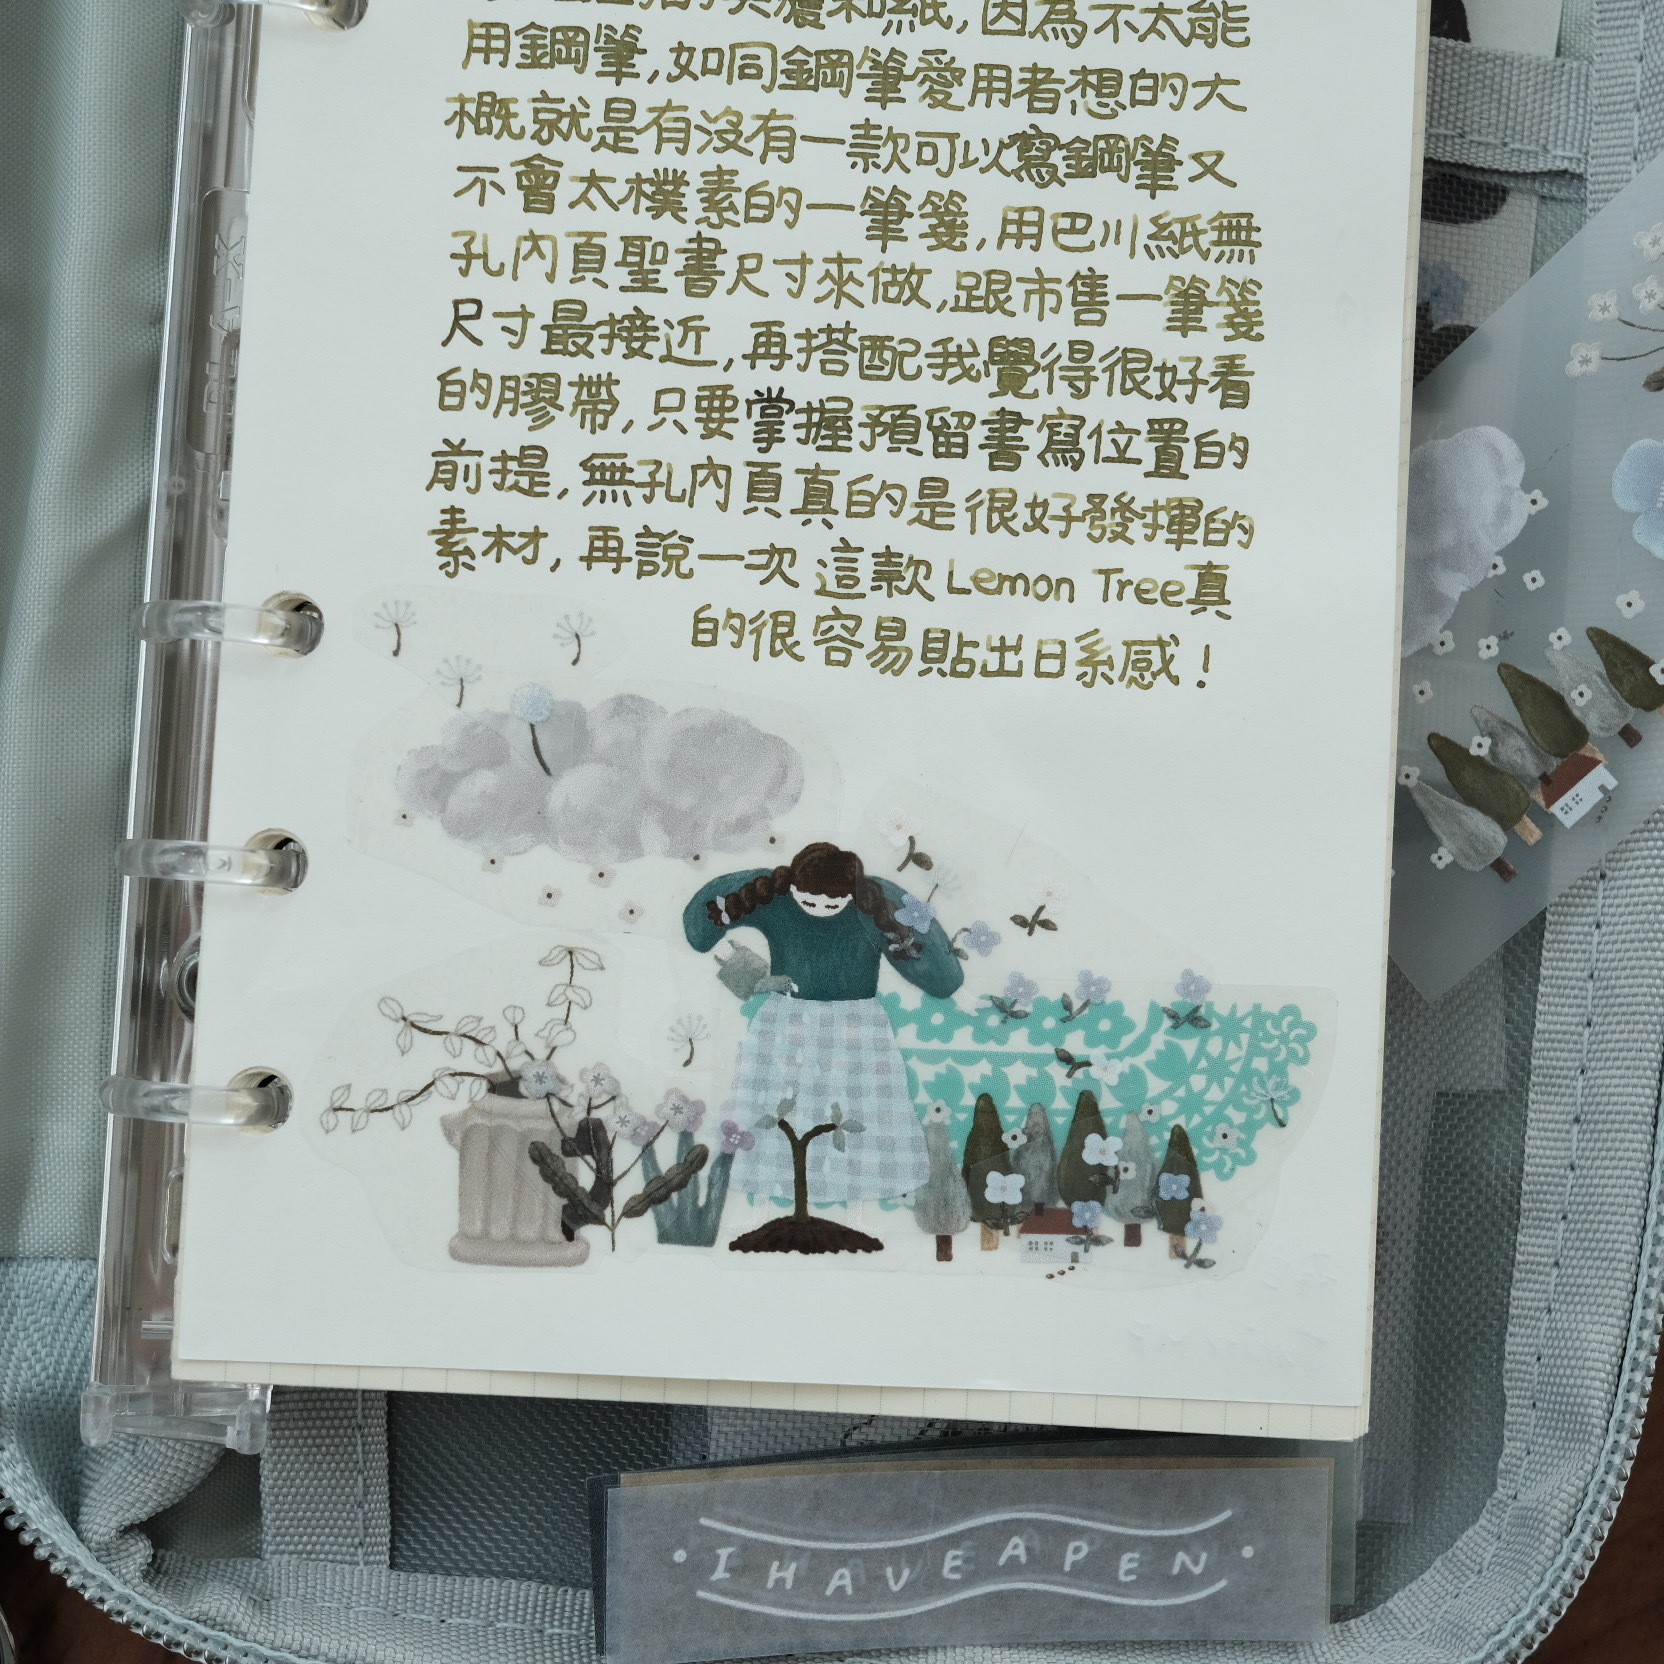 和紙,因為不太能
用鋼筆,如同鋼筆愛用者想的大
概就是有沒有一款可以寫鋼筆又
不會太樸素的一筆箋,用巴川紙無
孔內頁聖書尺寸來做,跟市售一筆箋
尺寸最接近,再搭配我覺得很好看
的膠帶,只要掌握預留書寫位置的
前提,無孔內頁真的是很好發揮的
素材,再說一次 這款 Lemon Tree真
的很容易貼出日系感!
I HAVE A PEN